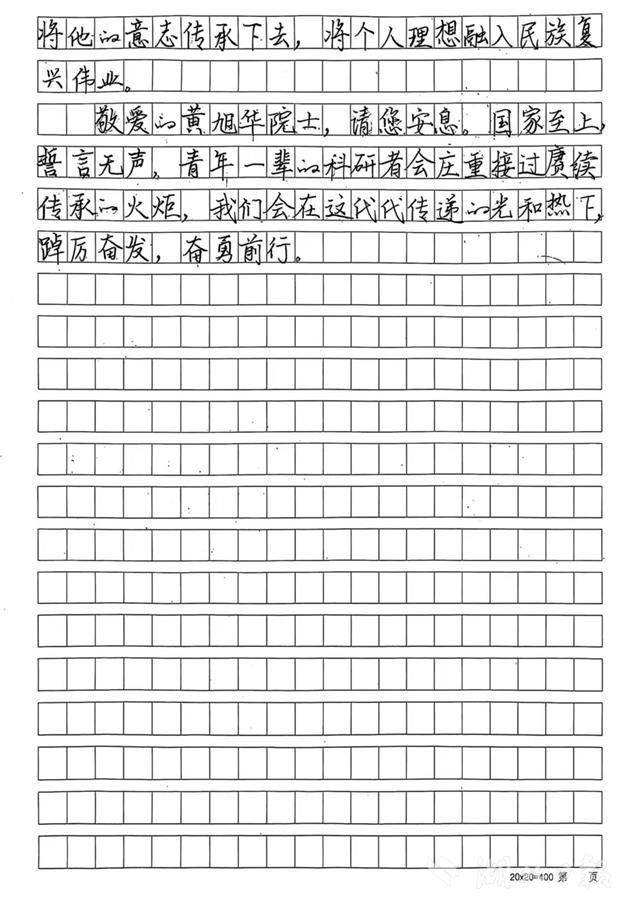 将他的意志传承下去，将个人理想融入民族复
兴伟业。
敬爱的黄旭华院士，请您安息。国家至上，
誓言无声，青年一辈的科研者会庄重接过赓续
传承的火炬，我们会在这代代传递的光和热下，
踔厉奋发，奋勇前行。
20×20=400 第 页